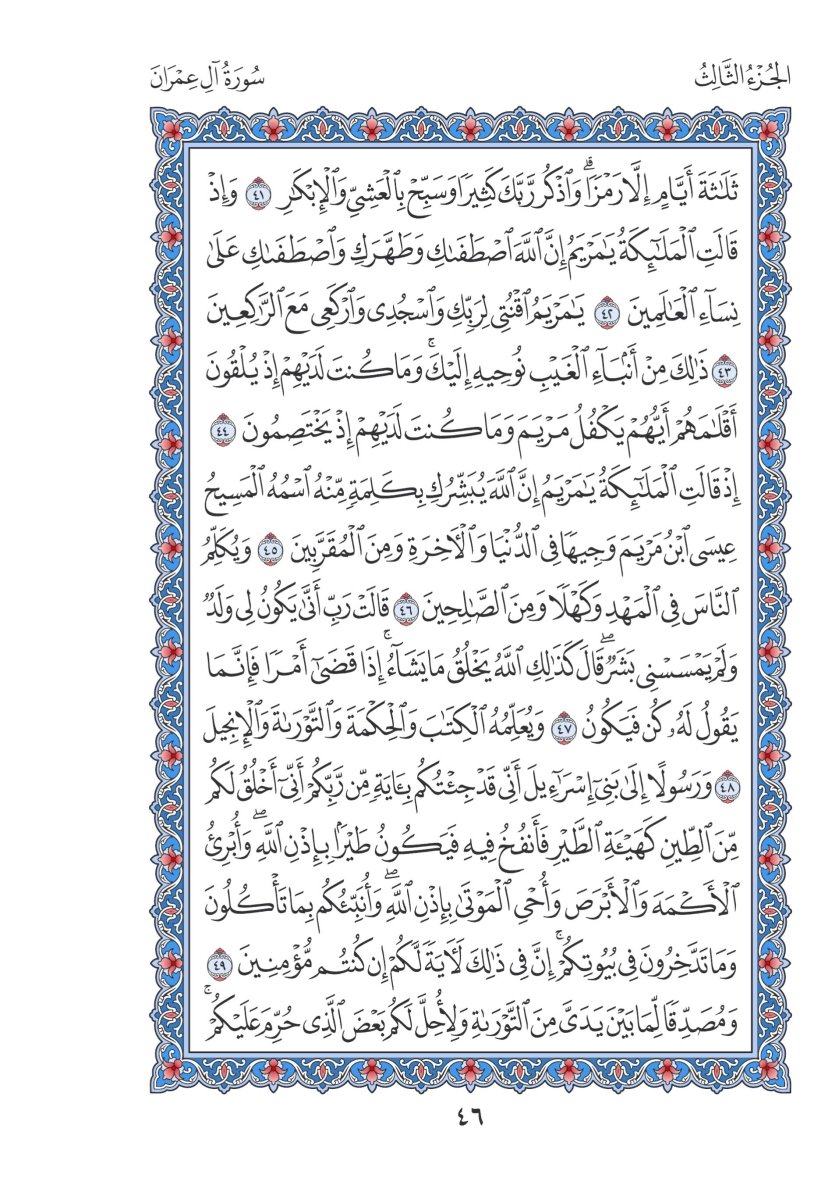 الجُزْءُ الثَّالِثُ
سُورَةُ آلِ عِمْرَانَ
ثَلَٰثَةَ أَيَّامٍ إِلَّا رَمْزٗاۗ وَٱذْكُر رَّبَّكَ كَثِيرٗا وَسَبِّحْ بِٱلْعَشِيِّ وَٱلْإِبْكَٰرِ ٤١ وَإِذْ
قَالَتِ ٱلْمَلَٰٓئِكَةُ يَٰمَرْيَمُ إِنَّ ٱللَّهَ ٱصْطَفَىٰكِ وَطَهَّرَكِ وَٱصْطَفَىٰكِ عَلَىٰ
نِسَآءِ ٱلْعَٰلَمِينَ ٤٢ يَٰمَرْيَمُ ٱقْنُتِي لِرَبِّكِ وَٱسْجُدِي وَٱرْكَعِي مَعَ ٱلرَّٰكِعِينَ
٤٣ ذَٰلِكَ مِنْ أَنۢبَآءِ ٱلْغَيْبِ نُوحِيهِ إِلَيْكَۚ وَمَا كُنتَ لَدَيْهِمْ إِذْ يُلْقُونَ
أَقْلَٰمَهُمْ أَيُّهُمْ يَكْفُلُ مَرْيَمَ وَمَا كُنتَ لَدَيْهِمْ إِذْ يَخْتَصِمُونَ ٤٤
إِذْ قَالَتِ ٱلْمَلَٰٓئِكَةُ يَٰمَرْيَمُ إِنَّ ٱللَّهَ يُبَشِّرُكِ بِكَلِمَةٖ مِّنْهُ ٱسْمُهُ ٱلْمَسِيحُ
عِيسَى ٱبْنُ مَرْيَمَ وَجِيهٗا فِي ٱلدُّنْيَا وَٱلْأٓخِرَةِ وَمِنَ ٱلْمُقَرَّبِينَ ٤٥ وَيُكَلِّمُ
ٱلنَّاسَ فِي ٱلْمَهْدِ وَكَهْلٗا وَمِنَ ٱلصَّٰلِحِينَ ٤٦ قَالَتْ رَبِّ أَنَّىٰ يَكُونُ لِي وَلَدٞ
وَلَمْ يَمْسَسْنِي بَشَرٞۖ قَالَ كَذَٰلِكِ ٱللَّهُ يَخْلُقُ مَا يَشَآءُۚ إِذَا قَضَىٰٓ أَمْرٗا فَإِنَّمَا
يَقُولُ لَهُۥ كُن فَيَكُونُ ٤٧ وَيُعَلِّمُهُ ٱلْكِتَٰبَ وَٱلْحِكْمَةَ وَٱلتَّوْرَىٰةَ وَٱلْإِنجِيلَ
٤٨ وَرَسُولًا إِلَىٰ بَنِيٓ إِسْرَٰٓءِيلَ أَنِّي قَدْ جِئْتُكُم بِـَٔايَةٖ مِّن رَّبِّكُمْ أَنِّيٓ أَخْلُقُ لَكُم
مِّنَ ٱلطِّينِ كَهَيْـَٔةِ ٱلطَّيْرِ فَأَنفُخُ فِيهِ فَيَكُونُ طَيْرَۢا بِإِذْنِ ٱللَّهِۖ وَأُبْرِئُ
ٱلْأَكْمَهَ وَٱلْأَبْرَصَ وَأُحْيِ ٱلْمَوْتَىٰ بِإِذْنِ ٱللَّهِۖ وَأُنَبِّئُكُم بِمَا تَأْكُلُونَ
وَمَا تَدَّخِرُونَ فِي بُيُوتِكُمْۚ إِنَّ فِي ذَٰلِكَ لَأٓيَةٗ لَّكُمْ إِن كُنتُم مُّؤْمِنِينَ ٤٩
وَمُصَدِّقٗا لِّمَا بَيْنَ يَدَيَّ مِنَ ٱلتَّوْرَىٰةِ وَلِأُحِلَّ لَكُم بَعْضَ ٱلَّذِي حُرِّمَ عَلَيْكُمْۚ
٤٦